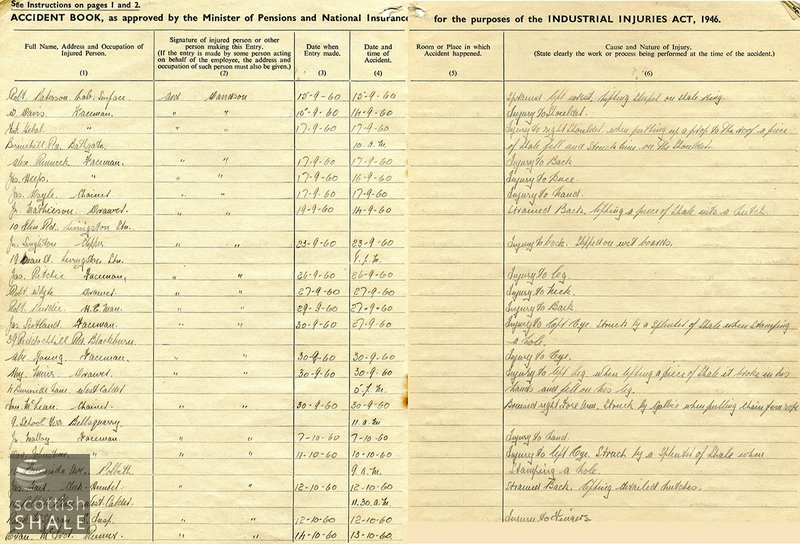 See Instructions on pages 1 and 2.
ACCIDENT BOOK, as approved by the Minister of Pensions and National Insurance for the purposes of the INDUSTRIAL INJURIES ACT, 1946.
Full Name, Address and Occupation of Injured Person. (1)
Signature of injured person or other person making this Entry. (If the entry is made by some person acting on behalf of the employee, the address and occupation of such person must also be given.) (2)
Date when Entry made. (3)
Date and time of Accident. (4)
Room or Place in which Accident happened. (5)
Cause and Nature of Injury. (State clearly the work or process being performed at the time of the accident.) (6)
Robt Paterson Surface Davidson 15-9-60 15-9-60 Sprained left wrist. lifting
W. Davis Faceman " " 15-9-60 14-9-60 Injury to Shoulder.
" " " 17-9-60 17-9-60 Injury to right shoulder when putting up a prop to the roof a piece
Bathgate 10 a.m. of Shale fell and Struck him on the Shoulder
Alex Renwick Faceman. " " 17-9-60 17-9-60 Injury to Back
Jas. " " " 17-9-60 16-9-60 Injury to knee.
Jas. Chainer " " 17-9-60 17-9-60 Injury to hand.
Jn. Mathieson Drawer " " 19-9-60 14-9-60 Strained Back. lifting a piece of Shale into a hutch
10 Elm Rd. Livingston Stn.
Jn. Singleton " " 23-9-60 23-9-60 Injury to back. Slipped on wet boards.
19 Main St. Livingstone Stn.
Jas. Ritchie Faceman " " 26-9-60 26-9-60 Injury to leg
Robt Whyte Drawer " " 27-9-60 27-9-60 Injury to neck
Robt " " 29-9-60 27-9-60 Injury to Back
Jas. Scotland Faceman " " 30-9-60 27-9-60 Injury to left Eye. Struck by a Splinter of Shale when Stamping
39 Riddochhill Rd Blackburn. a hole.
Alex Young Faceman " " 30-9-60 30-9-60 Injury to Eye.
Drawer " " 30-9-60 30-9-60 Injury to left leg. when lifting a piece of Shale it broke in his
Burnside Lane West Calder 5 p.m. hands and fell on his leg.
Ian McLean. Chainer " " 30-9-60 30-9-60 Bruised right Fore Arm. Struck by when putting chain from rope
9 School Terr. Bellsquarry 11 a.m.
Jn. Malloy Faceman " " 7-10-60 7-10-60 Injury to hand.
Johnstone " " 11-10-60 10-10-60 Injury to left Eye. Struck by a Splinter of Shale when
Burnside Ave. Polbeth 9 a.m. Stamping a hole.
" " 12-10-60 12-10-60 Strained Back. lifting derailed hutches.
West Calder 11.30 a.m.
" 12-10-60 12-10-60 Injury to Fingers
Evan " " 14-10-60 13-10-60
scottish
SHALE